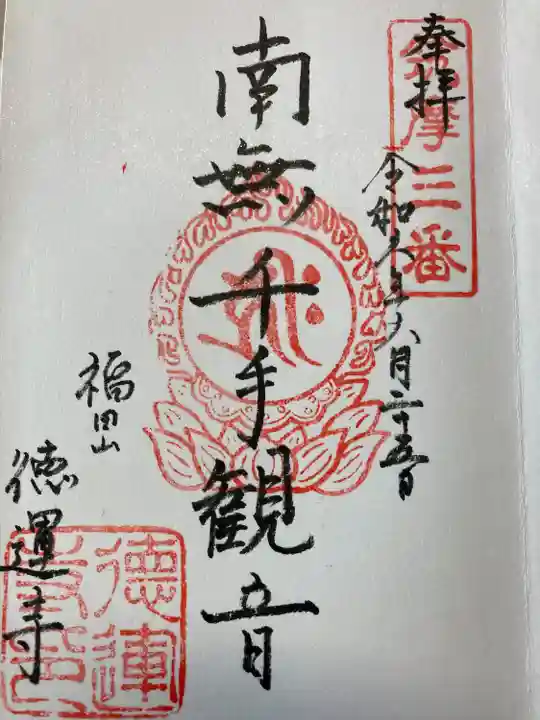 奉拝
摩三番
令和六年六月二十五日
南無千手観音
福田山
徳運寺
徳運
寺印